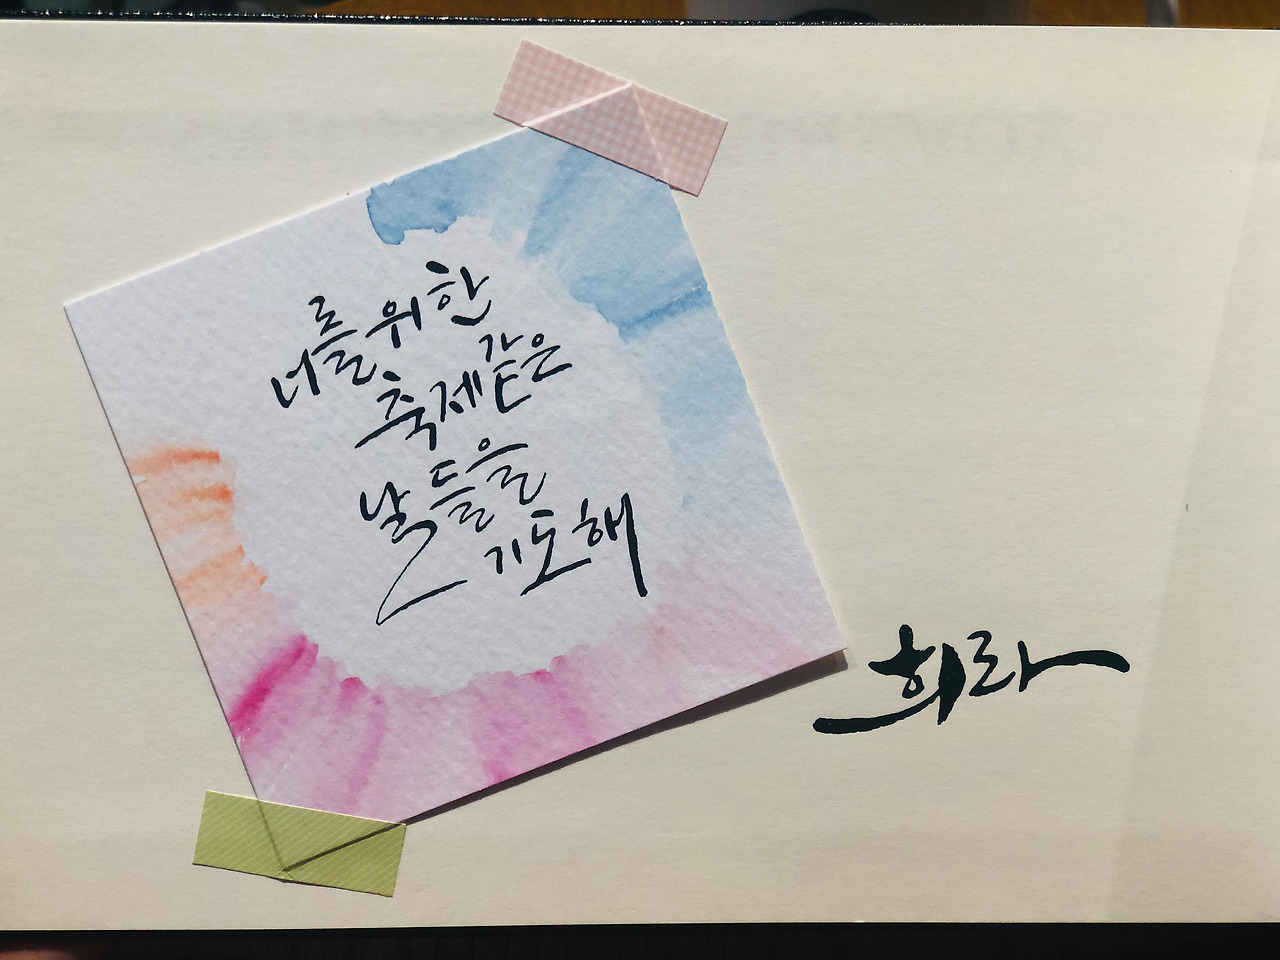 너를 위한
축제 같은
날들을
기도해
희라